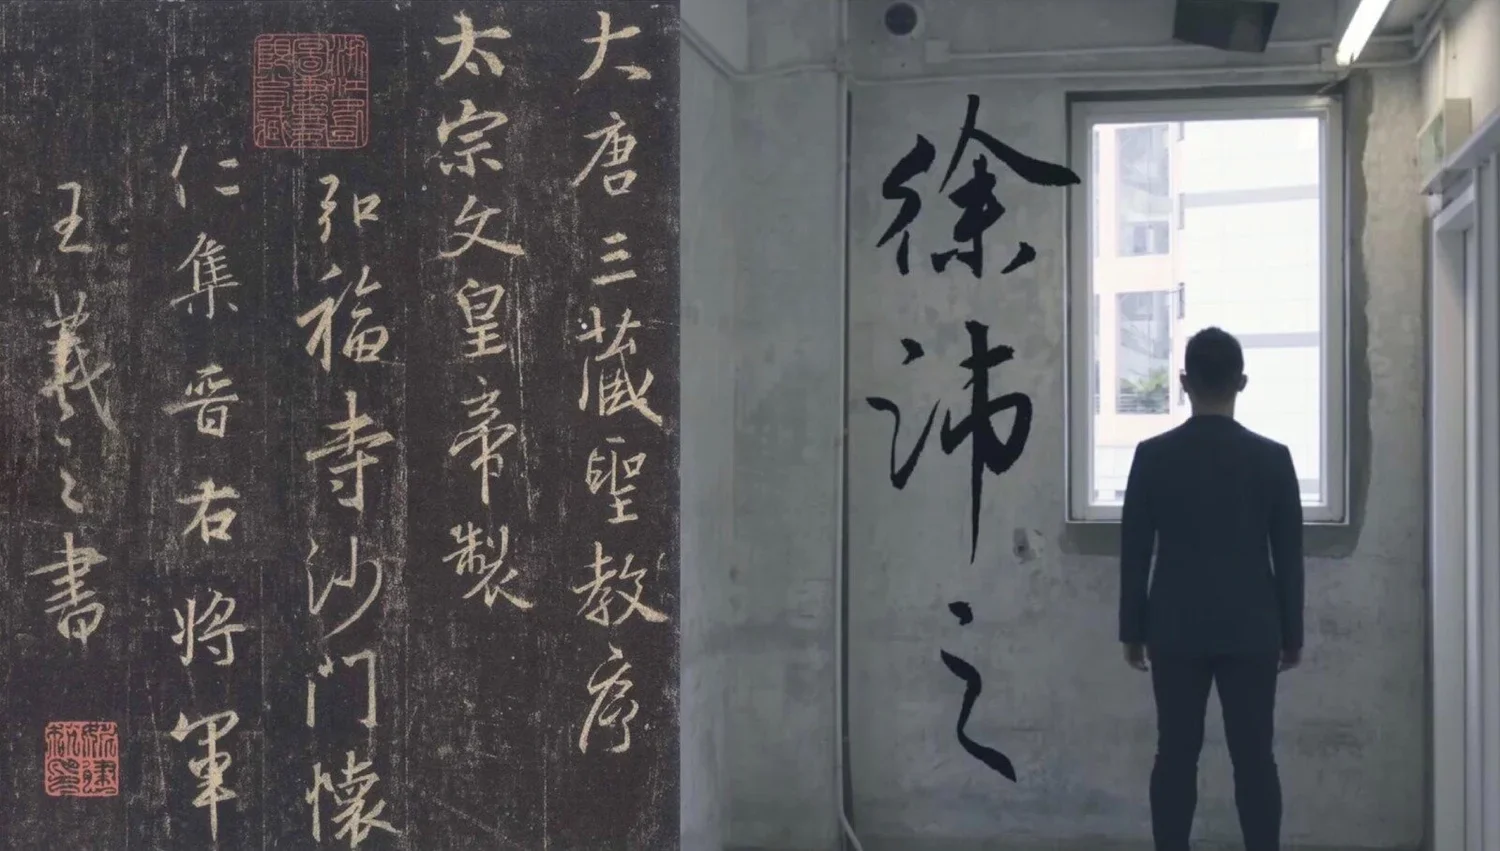 大唐三藏聖教序
太宗文皇帝製
弘福寺沙門懷
仁集晉右將軍
王羲之書
徐沛之